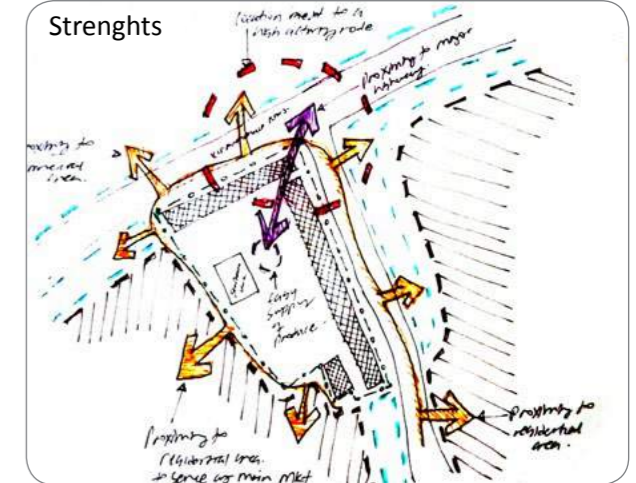 Strenghts
Location next to a
high activity node
Proximity to major
highway
proximity to
area.
easy
supply
of
produce.
Proximity to
residential area.
to serve as main mkt
Proximity to
residential
area.